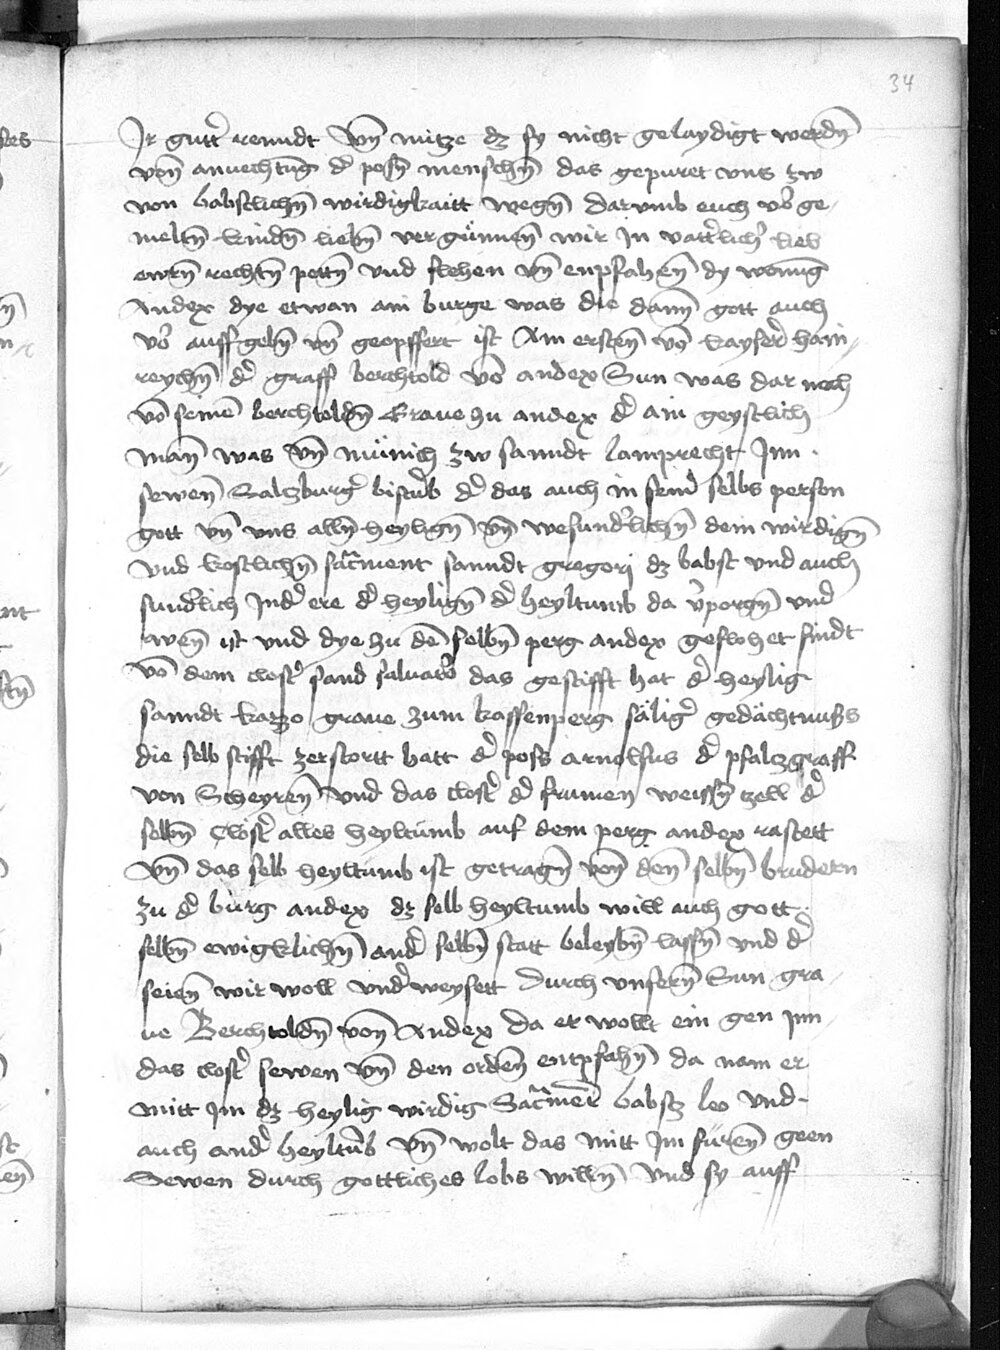 34
Jr gutt' renndt Vn̄ nutze dz sy nicht gelaydigt werdn̄
von̄ anuechtūg d' posn̄ menschn̄ das gepuret vns zw
von babstlichn̄ wirdigkaitt wegn̄ darumb euch vō ge-
meltn̄ kindn̄ liebn̄ vergünnen̄ wir in vatt'lich' lieb
ewrn̄ rechtn̄ pettn̄ vnd flehen vn̄ enpfahen̄ dy wonūg
Andex dye etwan ain burge was die dann̄ gott auch
vō auffgebn̄ vn̄ geopffert ist Am erstn̄ vō kayser' hain-
reychn̄ d' graff berchtold vō andex Sun was dar noch
vō seinē berchtoldn̄ Graue zu andex d' ain geystlich
man̄ was Vn̄ münich zw sanndt lamprecht Jnn
sewen̄ Salczburg' bistūb d' das auch in sein' selbs person
gott vn̄ vns alln̄ heylign̄ vn̄ besund'lichn̄ dem wirdign̄
vnd kostlichn̄ sac̄ment sanndt gregorj dz babst vnd auch
sund'lich Jnd' ere d' heylign̄ d' heyltumb da v'porgn̄ vnd
 ist vnd dye zu dē selbn̄ perg andex geflohet sindt
vō dem clost' sand saluatō das gestifft hat d' heylig
sanndt Razzo graue zum kassenperg sälig' gedächtnuss
die selb stifft zerstortt hatt d' poss arnolfus d' pfalczgraff
von Scheyren̄ vnd das clost' d' frumen weissn̄ zell d'
selbn̄ Clöst' alles heyltumb auf dem perg andex rastett
Vn̄ das selb heyltumb ist getragn̄ von̄ den̄ selbn̄ brudern
zu d' burg andex dz selb heyltumb will auch gott
selbn̄ ewigklichn̄ and' selbn̄ statt beleybn̄ lassn̄ vnd d'
seien̄ wir woll vnd'weysett durch vnsern̄ Sun gra-
ue Berchtoldn̄ von̄ Andex da er wollt ein gen jnn
das clost' sewen vn̄ den orden̄ entpfahn̄ da nam er
mitt jm dz heylig wirdig Sac̄ment babstz leo vnd
auch and' heyltūb vn̄ wolt das mitt Jm füren̄ geen
Sewen durch gottliches lobs willn̄ Vnd sy auff